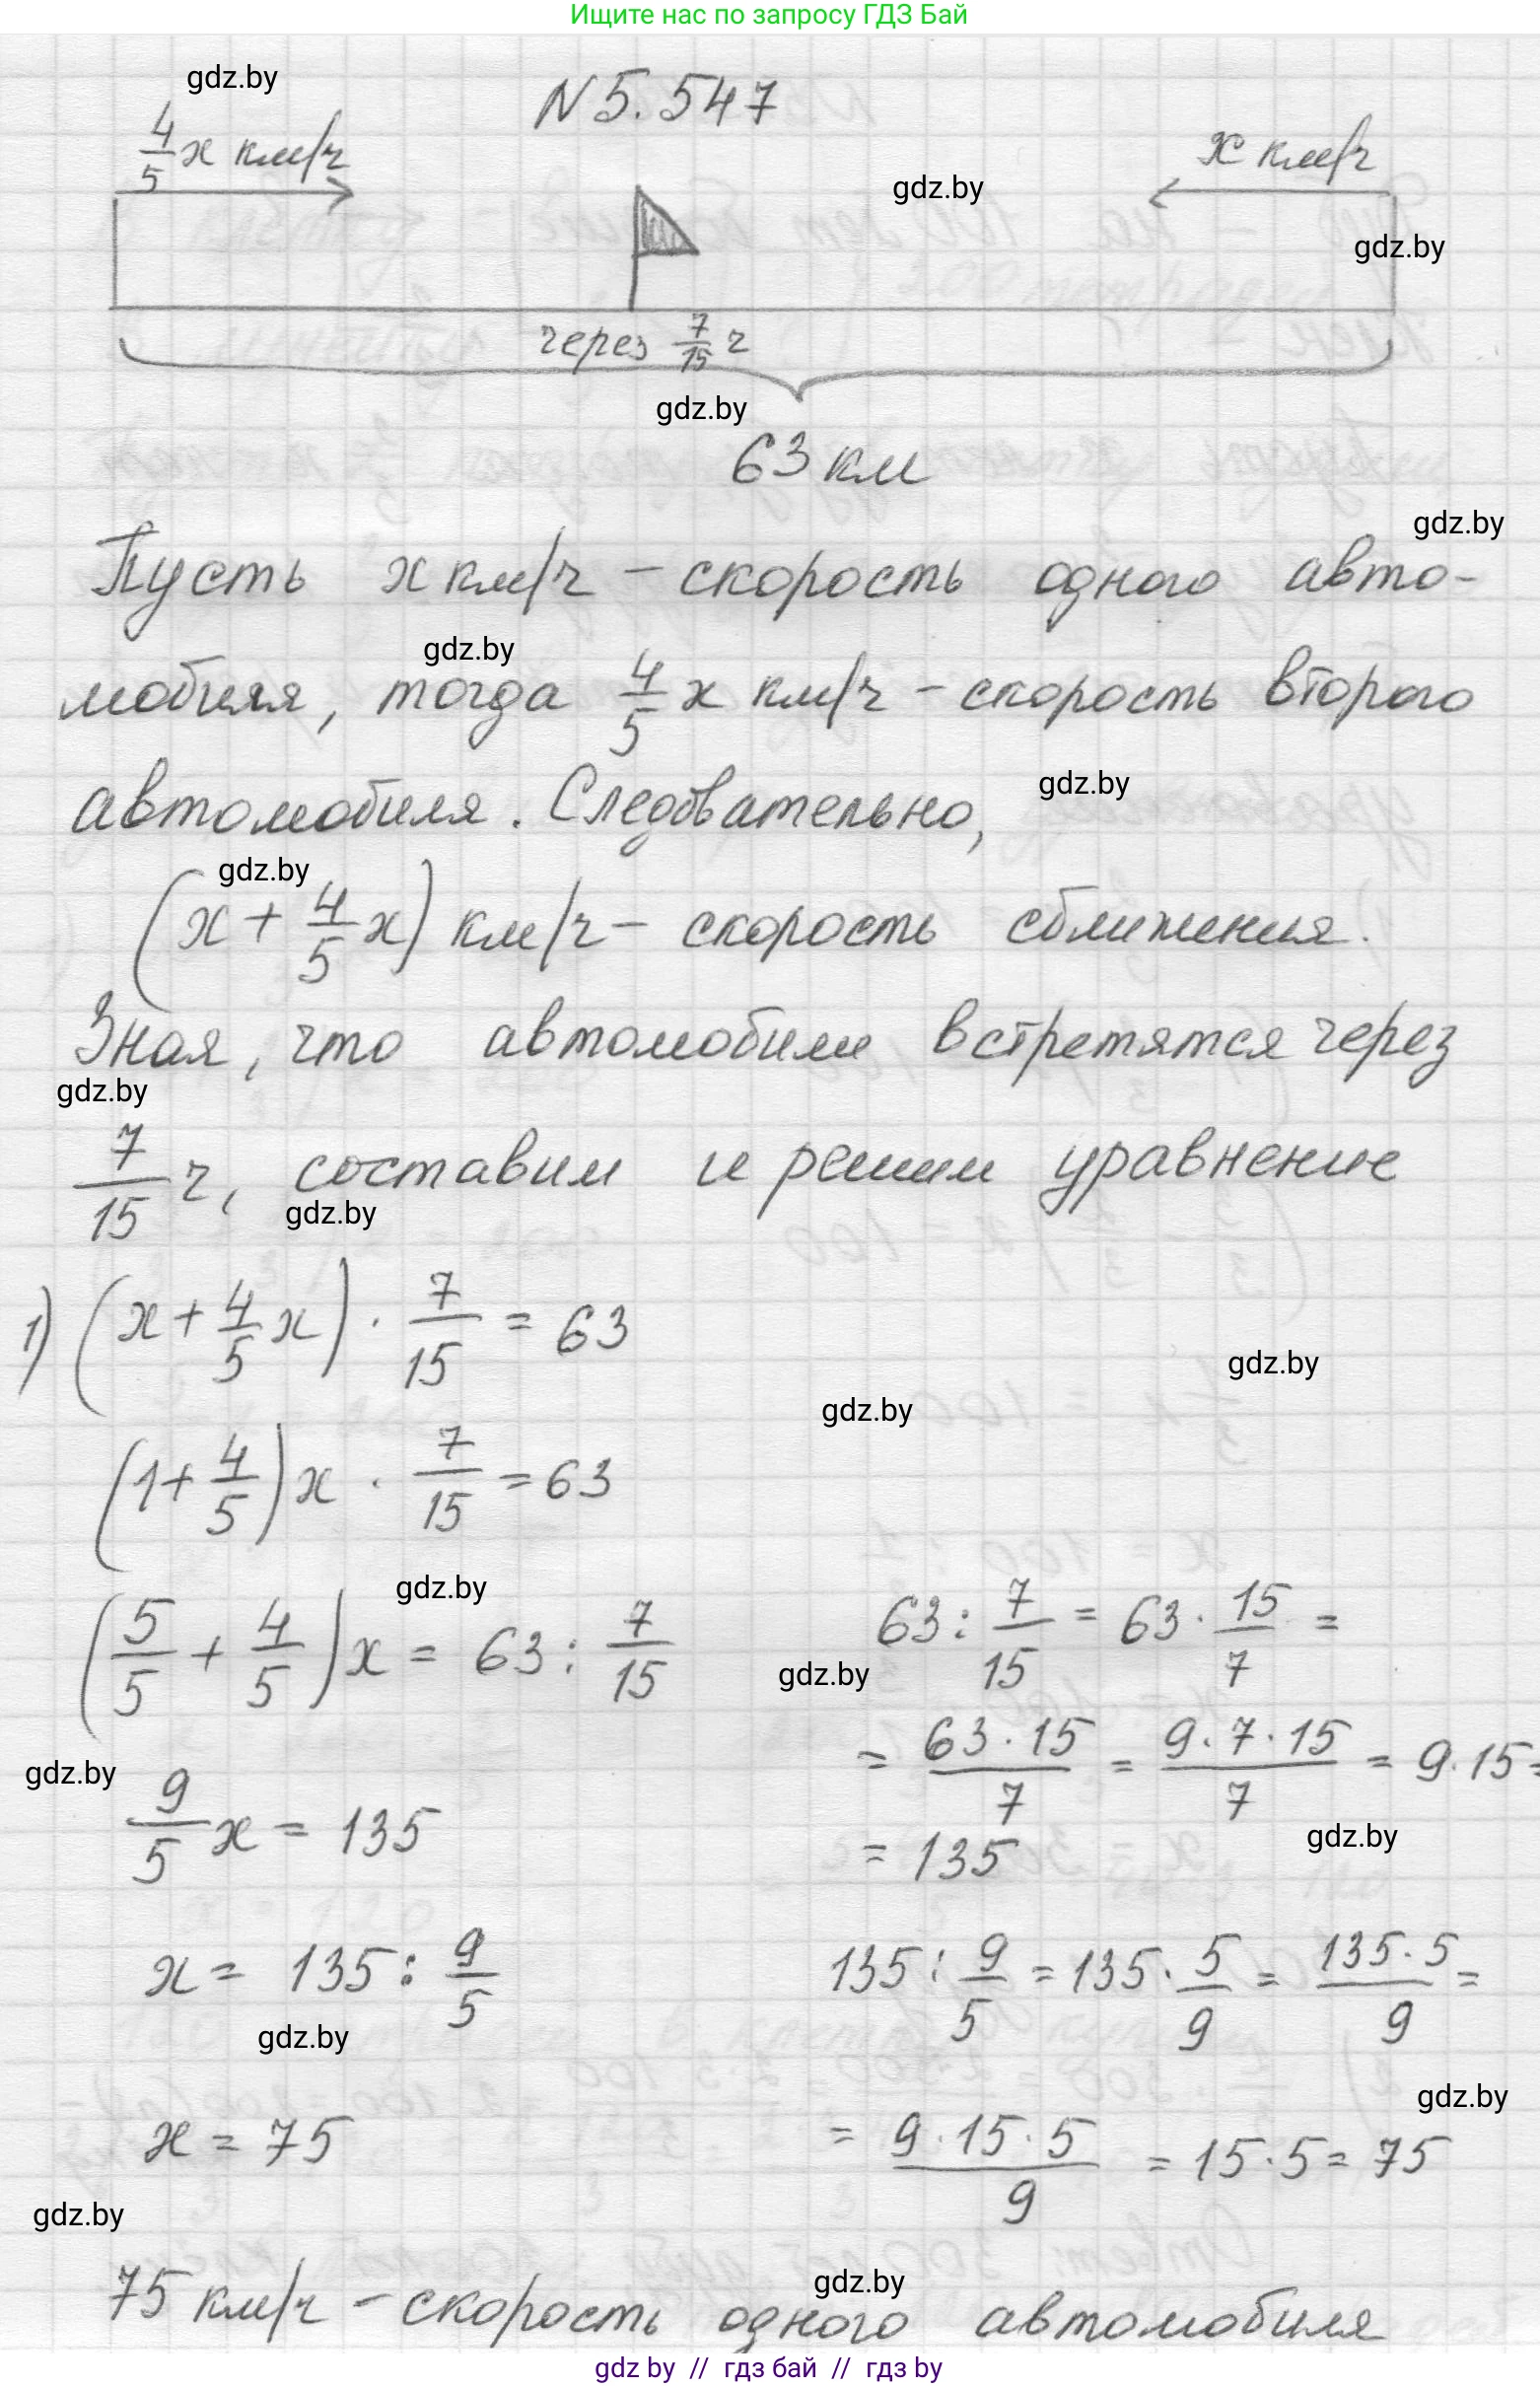 Ищите нас по запросу ГДЗ Бай
gdz.by
N 5.547
4/5 x км/ч
x км/ч
gdz.by
gdz.by
через 7/15 ч
gdz.by
63 км
gdz.by
Пусть x км/ч – скорость одного авто-
gdz.by
мобиля, тогда 4/5 x км/ч – скорость второго
gdz.by
автомобиля. Следовательно,
gdz.by
(x + 4/5 x) км/ч – скорость сближения.
Зная, что автомобили встретятся через
gdz.by
7/15 ч, составим и решим уравнение
gdz.by
1) (x + 4/5 x) · 7/15 = 63
gdz.by
gdz.by
(1 + 4/5) x · 7/15 = 63
gdz.by
(5/5 + 4/5) x = 63 : 7/15
63 : 7/15 = 63 · 15/7 =
gdz.by
= 63 · 15/7 = 9 · 7 · 15/7 = 9 · 15 =
gdz.by
9/5 x = 135
gdz.by
= 135
x = 135 : 9/5
135 : 9/5 = 135 · 5/9 = 135 · 5/9 =
gdz.by
gdz.by
x = 75
= 9 · 15 · 5/9 = 15 · 5 = 75
gdz.by
gdz.by
75 км/ч – скорость одного автомобиля
gdz by // гдз бай // гдз by